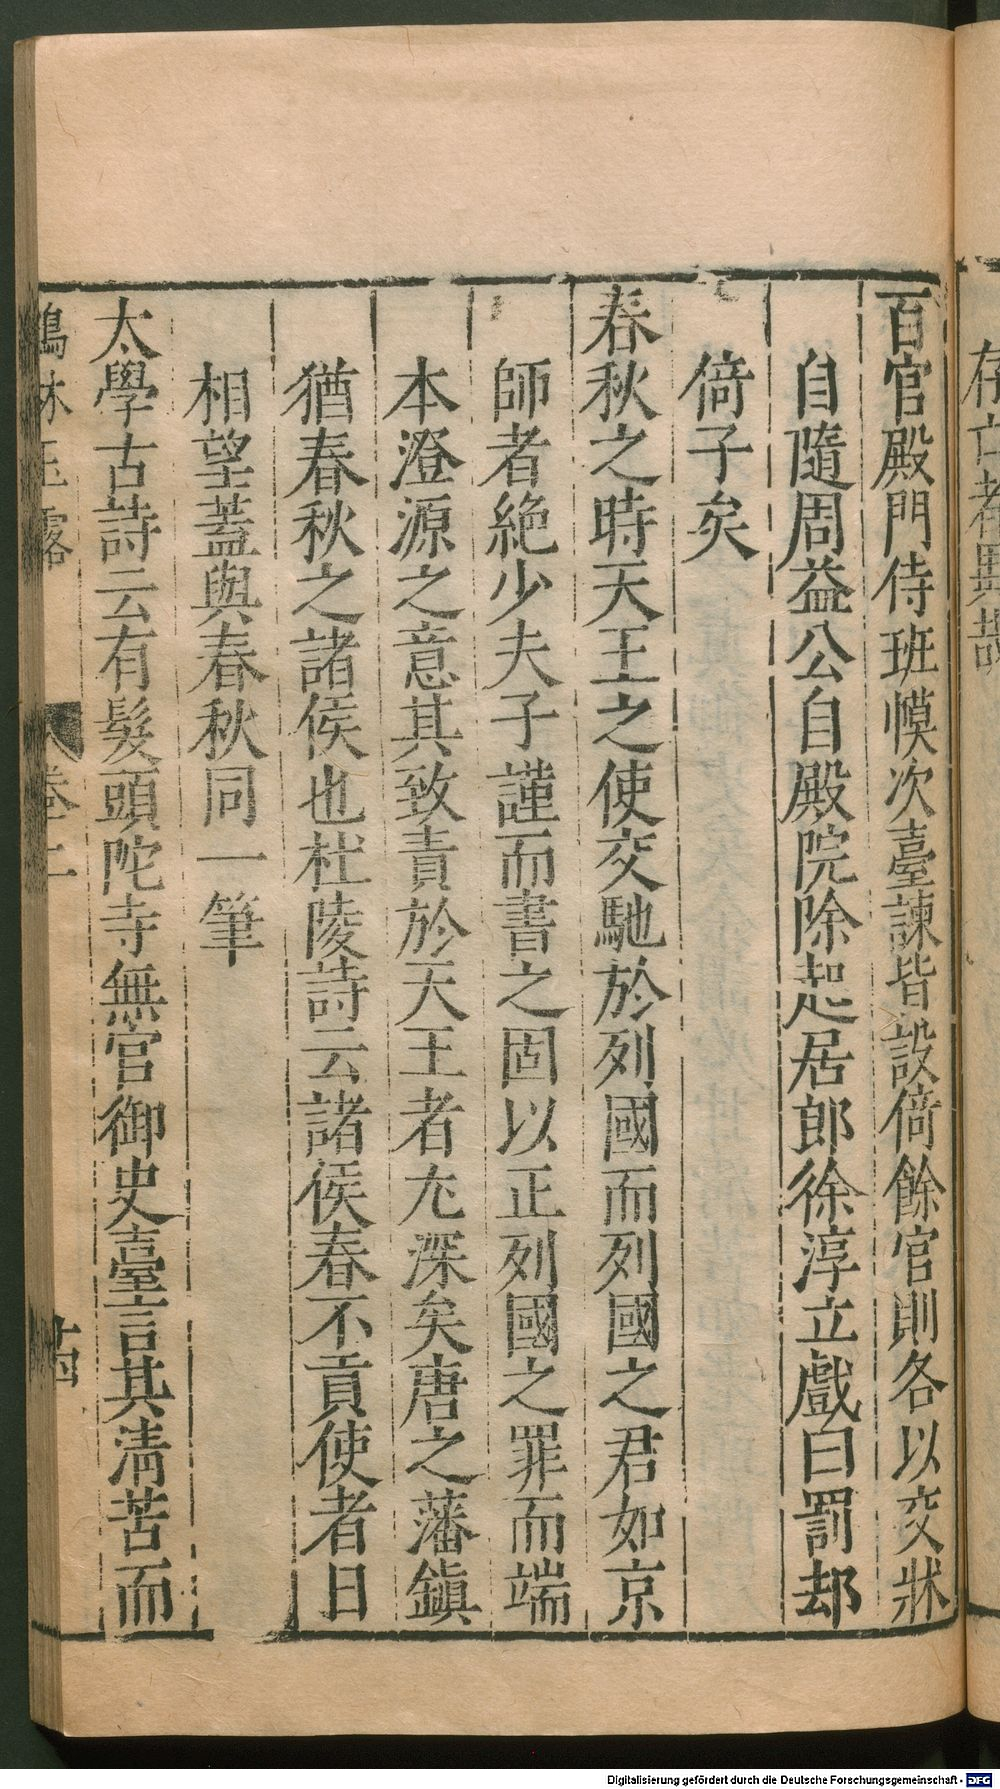 百官殿門侍班幙次臺諫皆設倚餘官則各以交牀
自隨周益公自殿院除起居郎徐淳立戲曰罰却
倚子矣
春秋之時天王之使交馳於列國而列國之君如京
師者絶少夫子謹而書之固以正列國之罪而端
本澄源之意其致責於天王者尤深矣唐之藩鎮
猶春秋之諸侯也杜陵詩云諸侯春不貢使者日
相望蓋與春秋同一筆
太學古詩云有髮頭陀寺無官御史臺言其清苦而
鶴林玉露 卷二 十四
Digitalisierung gefördert durch die Deutsche Forschungsgemeinschaft - DFG